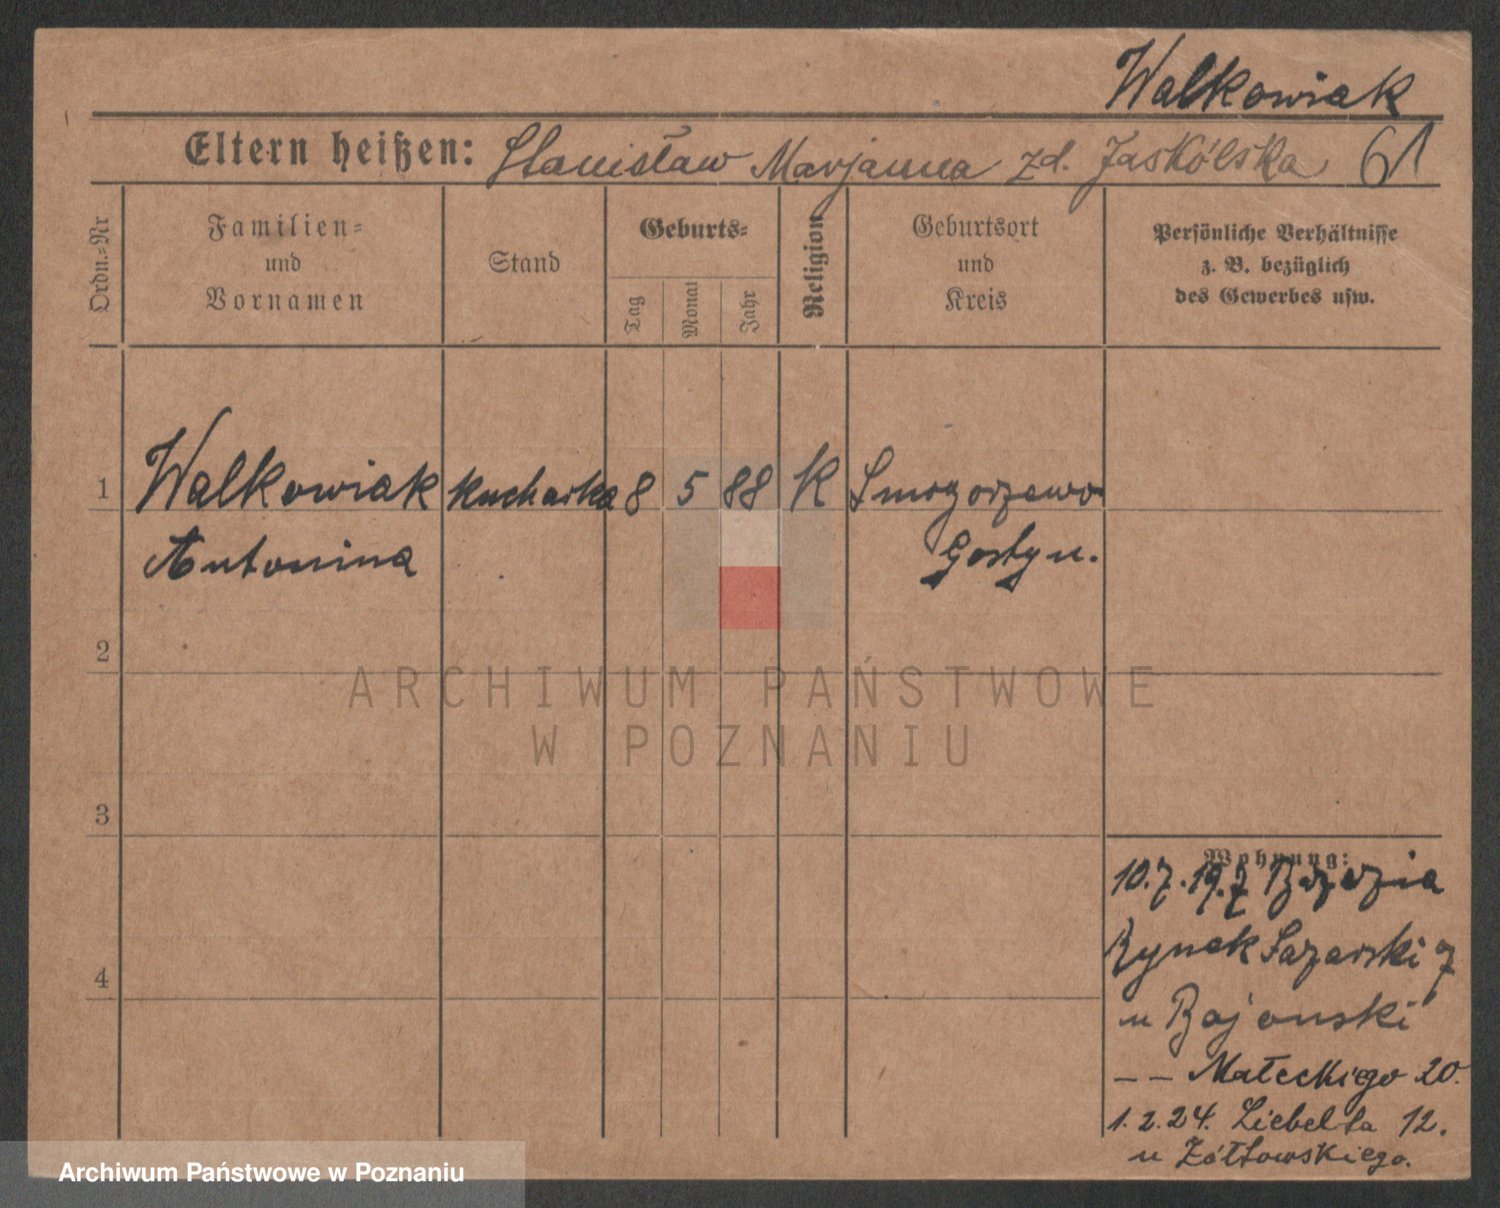 Walkowiak
Eltern heißen: Stanisław Marjanna zd. Jaskólska 61
Ordn.=Nr
Familien=
und
Vornamen
Stand
Geburts=
Tag
Monat
Jahr
Religion
Geburtsort
und
Kreis
Persönliche Verhältnisse
z. B. bezüglich
des Gewerbes usw.
1 Walkowiak kucharka 8 5 88 K Smogorzewo
Antonina Gostyn.
2
3
4
Wohnung:
10.7.19.
Rynek Łazarski 7
u Bajonski
— — Małeckiego 20.
1.2.24. Liebelta 12.
u Żółtowskiego.
ARCHIWUM PAŃSTWOWE
W POZNANIU
Archiwum Państwowe w Poznaniu